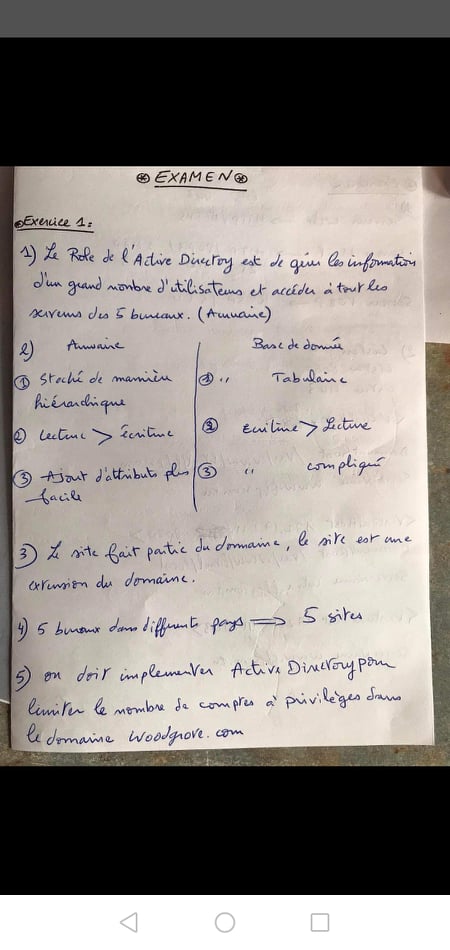 EXAMEN
Exercice 1:
1) Le Role de l'Active Directoy est de gérer les informations
d'un grand nombre d'utilisateurs et accéder à tout les
serveurs des 5 bureaux. (Annuaire)
2) Annuaire
① Stocké de manière
hiérarchique
② Lecture > écriture
③ Ajout d'attributs plus
facile
Base de donnée
① '' Tabulaire
② Ecriture > Lecture
③ '' compliqué
3) Le site fait partie du domaine, le site est une
extension du domaine.
4) 5 bureaux dans différents pays ⟹ 5 sites
5) on doit implementer Active Directory pour
limiter le nombre de comptes à privilèges dans
le domaine Woodgrove.com